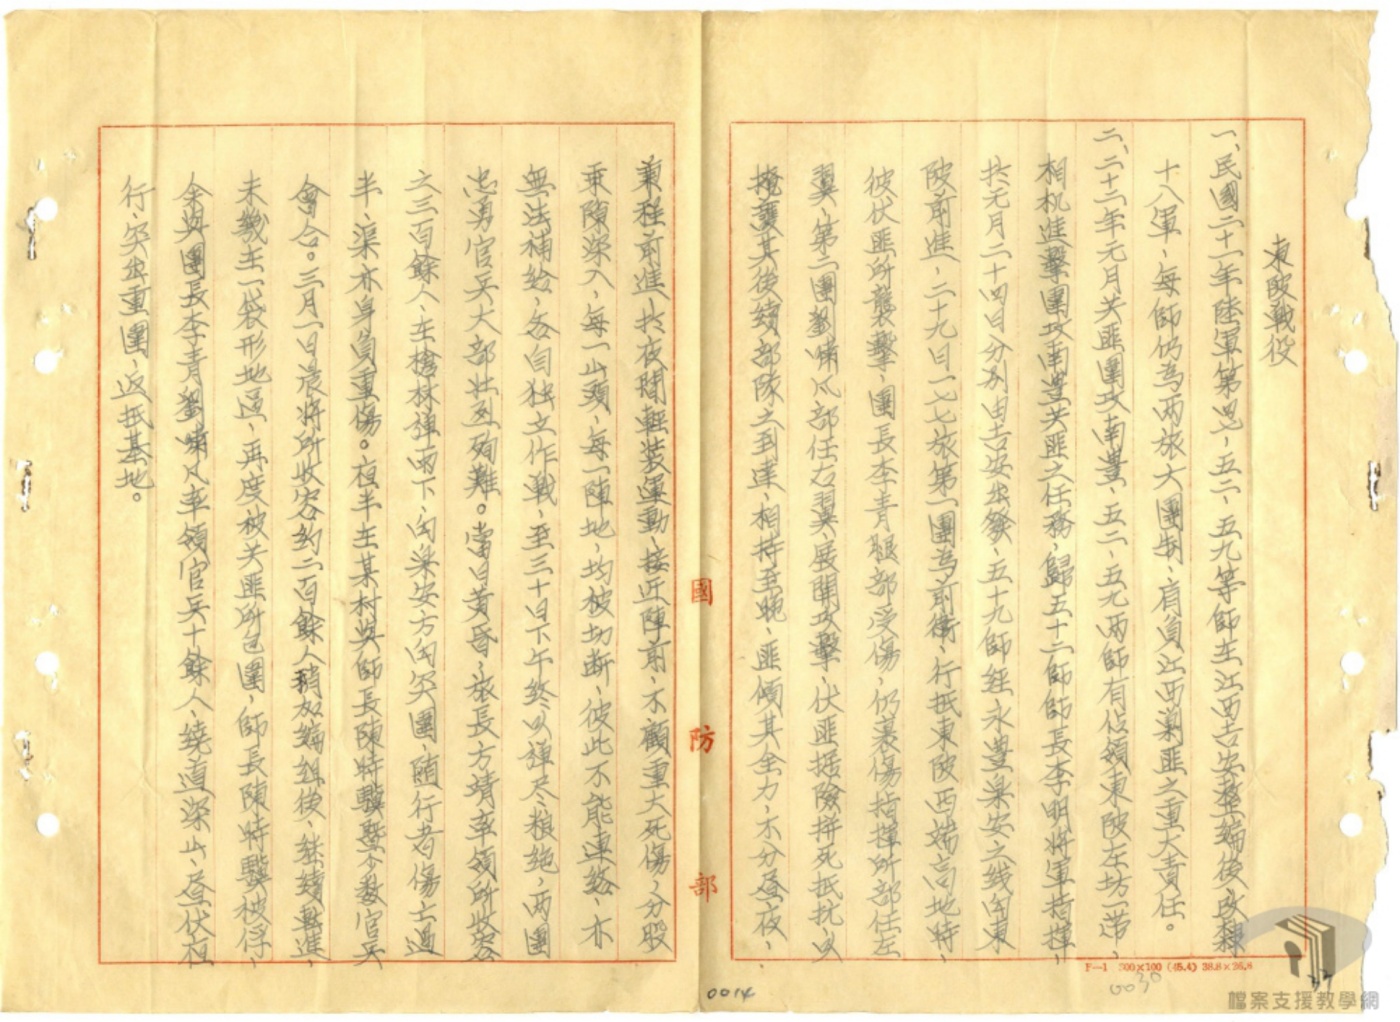 東陂戰役
一、民國二十一年陸軍第、五二、五九等師在江西吉安整編後、改隸
十八軍、每師仍為兩旅大團制、肩負江西剿匪之重大責任。
二、二十二年元月共匪圍攻南豐、五二、五九兩師有佔領東陂左坊一帶、
相机進擊圍攻南豐共匪之任務、歸五十二師師長李明將軍指揮、
於元月二十四日分別由吉安出發、五十九師經永豐樂安之线向東
陂前進、二十九日一七七旅第一團為前衛、行抵東陂西端高地時、
彼伏匪所襲擊、團長李青腿部受傷、仍裹傷指揮所部任左
翼、第二團劉嘯凡部任右翼、展開攻擊、伏匪據險拼死抵抗、以
掩護其後續部隊之到達、相持至晚、匪傾其全力、不分昼夜、
兼程前進、於夜間輕裝運動、接近陣前、不顧重大死傷、分股
乘隙深入、每一山頭、每一陣地、均被切断、彼此不能連絡、亦
無法補給、各自独立作戰、至三十日下午終以彈尽、粮絶、兩團
忠勇官兵、大部壯烈殉難。當日黃昏、旅長方靖率領所收容
之三百餘人、在槍林彈雨下、向樂安方向突圍、隨行者傷亡過
半、渠亦身負重傷。夜半在某村與師長陳時驥暨少数官兵
會合。三月一日晨將所收容約二百餘人稍加編組後、继續轉進、
未幾在一袋形地區、再度被共匪所包圍、師長陳時驥被俘、
余與團長李青劉嘯凡率領官兵十餘人、繞道深山、昼伏夜
行、突出重圍、返抵基地。
國防部
F—1 500×100 (45.4) 38.8×26.8
0030
0014
檔案支援教學網